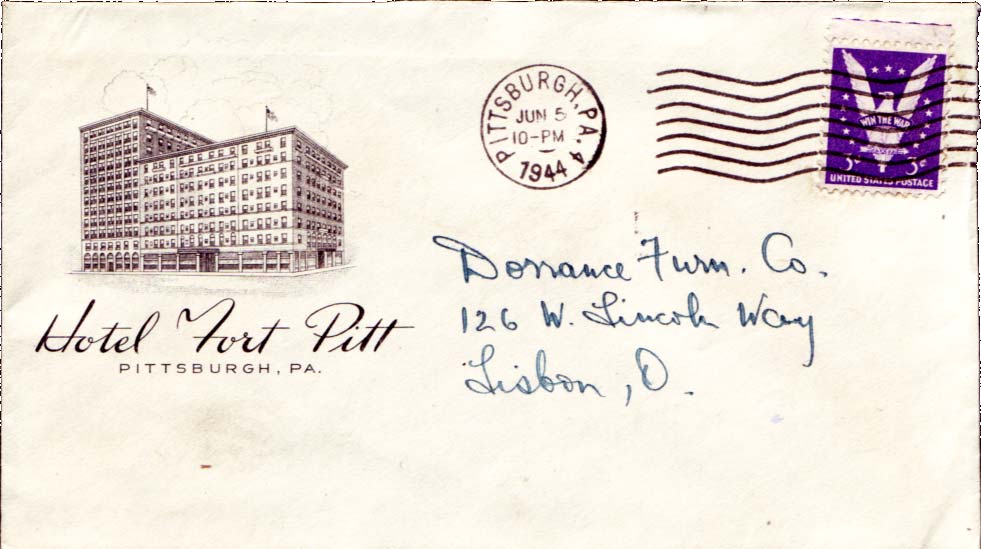 Hotel Fort Pitt
PITTSBURGH, PA.
PITTSBURGH, PA. 4
JUN 5
10-PM
1944
WIN THE WAR
3¢ 3¢
UNITED STATES POSTAGE
Dorrance Furn. Co.
126 W. Lincoln Way
Lisbon, O.